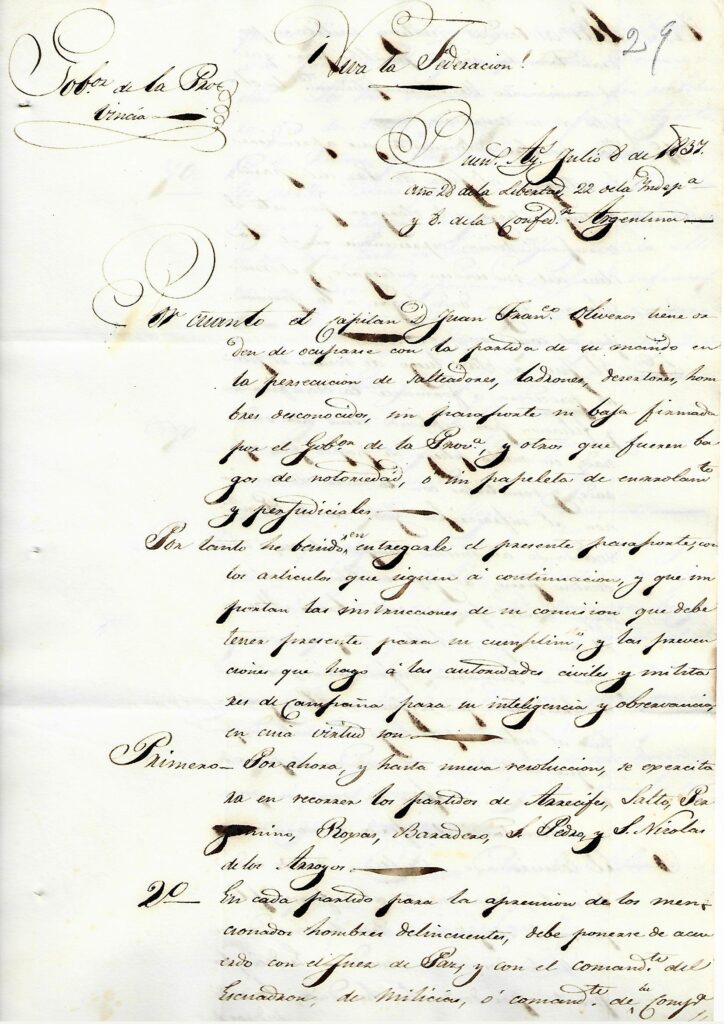 29
¡Viva la Federacion!
Gob.or de la Pro-
vincia
Buen.s Ay.s Julio 8 de 1837.
Año 28 de la Libertad, 22 de la Indep.a
y 8. de la Confed.n Argentina
Por cuanto el Capitan D. Juan Fran.co Oliveros tiene or
den de ocuparse con la partida de su mando en
la persecucion de salteadores, ladrones, desertores, hom
bres desconocidos, sin pasaporte ni baja firmada
por el Gob.or de la Prov.a, y otros que fueren ba
gos de notoriedad, ó sin papeleta de enrrolam.to
y perjudiciales
Por tanto he benido en entregarle el presente pasaporte, con
los articulos que siguen á continuacion, y que im
portan las instrucciones de su comision que debe
tener presente para su cumplim.to, y las preven
ciones que hago á las autoridades civiles y milita
res de Campaña para su inteligencia y observancia,
en cuia virtud son
Primero Por ahora, y hasta nueva resolucion, se exercita
ra en recorrer los partidos de Arrecife, Salto, Per
gamino, Rojas, Baradero, S. Pedro, y S. Nicolas
de los Arroyos
2.o En cada partido para la aprension de los men-
cionados hombres delincuentes, debe ponerse de acu
erdo con el Juez de Paz, y con el comand.te del
Escuadron, de milicias, ó comand.te de Comp.a